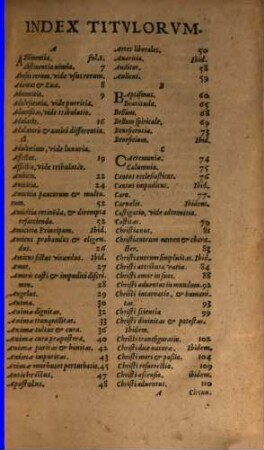 INDEX TITVLORVM.
A
Abstinentia. fol. 2.
Abstinentia nimia. 7
Abusus rerum, vide vsus rerum.
Adam & Eua. 8
Ademitio. 9
Adolescentia, vide pueritia.
Aduersitas, vide tribulatio.
Adulatio. 16
Adulatoris & amici differentia. Ibid.
Adulterium, vide luxuria.
Afflictus. 19
Afflictio, vide tribulatio.
Amicitia. 22
Amicitia. 24
Amicitia paucorum & multorum. 32
Amicitia retinenda, & dirempta resarcienda. 52
Amicitia Principum. Ibid.
Amicus probandus & eligendus. 26
Amicus fictus vitandus. Ibid.
Amor. 27
Amoris casti & impudici discrimen. 28
Angelus. 29
Anima. 30
Animæ dignitas. 32
Animæ tranquillitas. 33
Animæ cultus & cura. 36
Animæ cura præpostera. 40
Animæ puritas & bonitas. 42
Animæ impuritas. 43
Animæ morbus et perturbatio. 45
Antichristus. 47
Apostolus. 48
Artes liberales. 50
Auaritia. Ibid.
Auditus. 58
Auditus. 59
B
Baptismus. 60
Beatitudo. 65
Bellum. 68
Bellum spirituale. 69
Beneficentia. 73
Beneficium. Ibid.
C
Cæremonia. 74
Calumnia. 75
Cantus ecclesiasticus. 76
Cantus impudicus. Ibid.
Caro. 77
Carnalis. Ibidem.
Castigatio, vide admonitio.
Castitas. 79
Christianus. 81
Christianorum nomen & character. 83
Christianorum simplicitas. Ibid.
Christi attributa varia. 84
Christi amor in suos. 88
Christi aduentus in mundum. 92
Christi incarnatio, & humanitas. 95
Christi scientia. 99
Christi diuinitas & potestas. Ibidem.
Christi transfiguratio. 102
Christi duæ naturæ. Ibidem.
Christi mors & passio. 104
Christi resurrectio. 109
Christi ascensio. ibidem.
Christi aduentus. 110
A